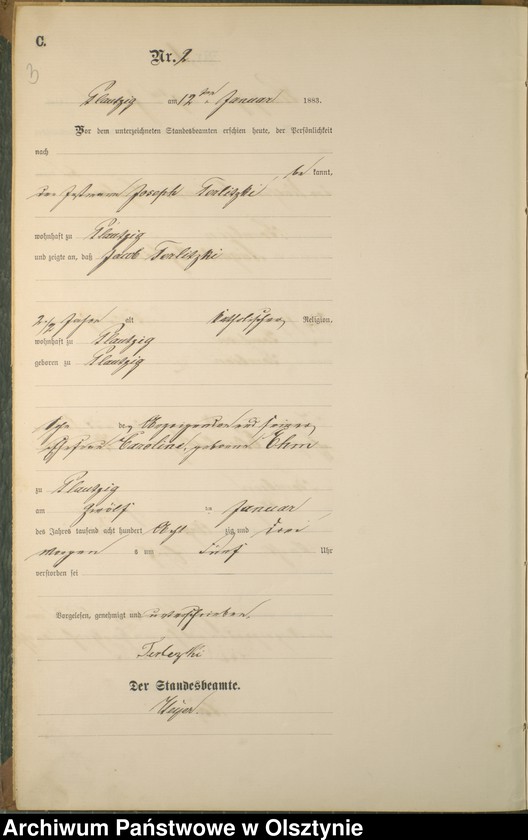 C.
3
Nr. 2
Plautzig am 12ten Januar 1883.
Vor dem unterzeichneten Standesbeamten erschien heute, der Persönlichkeit
nach
be kannt,
der Joseph Torlitzki
wohnhaft zu Plautzig
und zeigte an, daß Jacob Torlitzki
2 1/2 Jahre alt katholischer Religion,
wohnhaft zu Plautzig
geboren zu Plautzig
Sohn des Anzeigenden und seiner
Ehefrau Caroline, geborene Ehm
zu Plautzig
am zwölf ten Januar
des Jahres tausend acht hundert Acht zig und drei
Morgens um fünf Uhr
verstorben sei
Vorgelesen, genehmigt und unterschrieben.
Torlitzki
Der Standesbeamte.
Archiwum Państwowe w Olsztynie